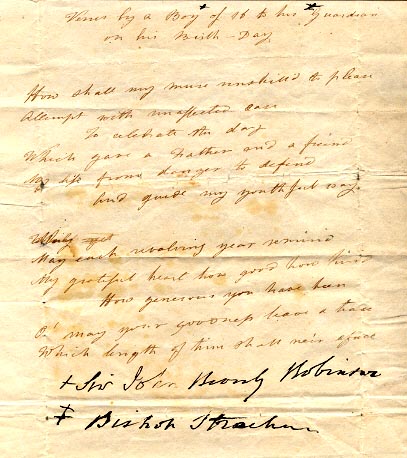 Verses by a Boy of 16 to his Guardian
on his Birth-Day
How shall my muse unskilled to please
Attempt with unaffected ease
To celebrate the day
Which gave a Father and a friend
My life from danger to defend
And guide my youthful way.
May each revolving year remind
My grateful heart how good how kind
How generous you have been
O! may your goodness leave a trace
Which length of time shall ne'er efface
+ Sir John Beverly Robinson
‡ Bishop Strachan